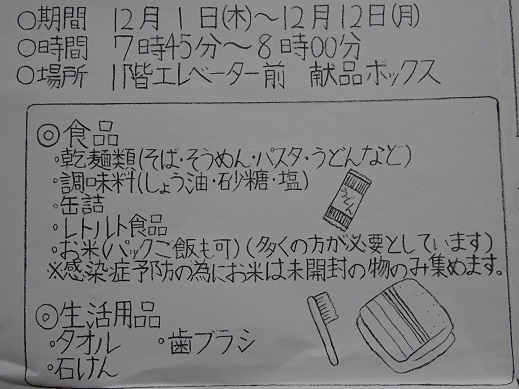 ○期間 12月1日(木)～12月12日(月)
○時間 7時45分～8時00分
○場所 1階エレベーター前 献品ボックス
◎食品
・乾麺類(そば・そうめん・パスタ・うどんなど)
・調味料(しょう油・砂糖・塩)
・缶詰
・レトルト食品
うどん
・お米(パックご飯も可)(多くの方が必要としています)
※感染症予防の為にお米は未開封の物のみ集めます。
◎生活用品
・タオル ・歯ブラシ
・石けん